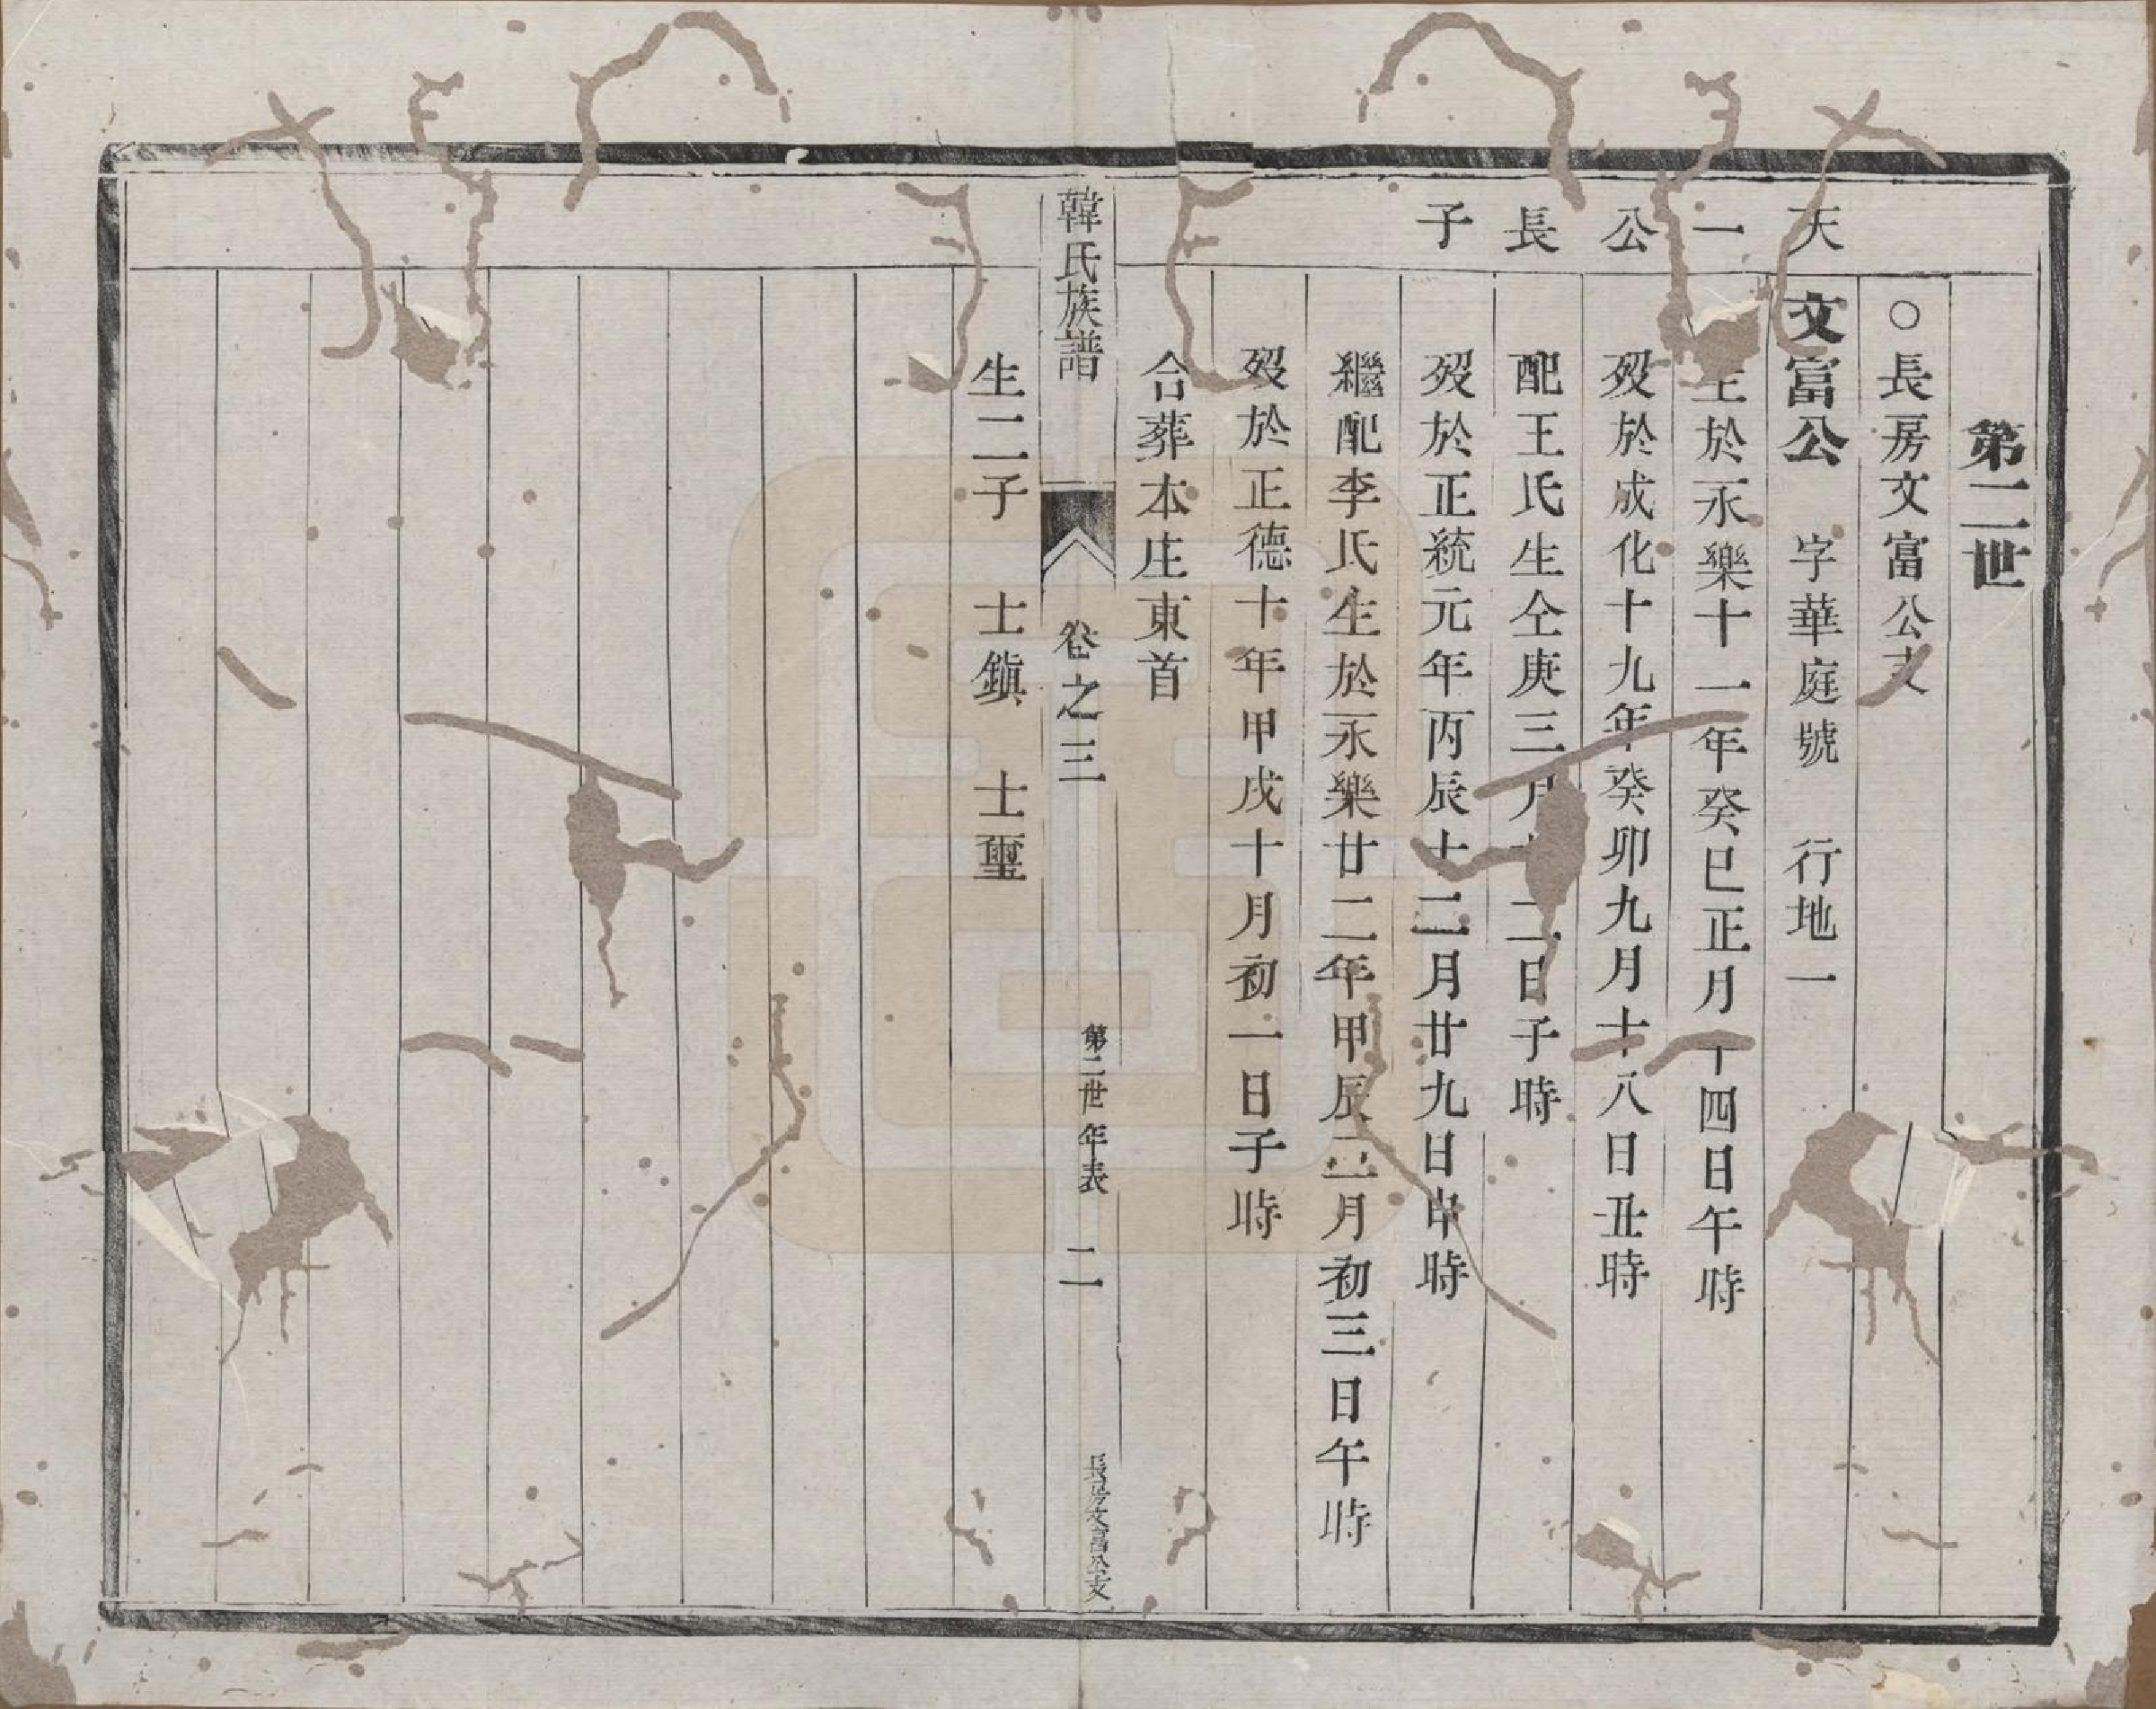 天一公長子
第二世
○長房文富公支
文富公 字華庭號 行地一
生於永樂十一年癸巳正月十四日午時
歿於成化十九年癸卯九月十八日丑時
配王氏生仝庚三月二日子時
歿於正統元年丙辰十二月廿九日申時
繼配李氏生於永樂廿二年甲辰二月初三日午時
歿於正德十年甲戌十月初一日子時
合葬本庄東首
韓氏族譜 卷之三 第二世年表 二 長房文富公支
生二子 士鎮 士璽